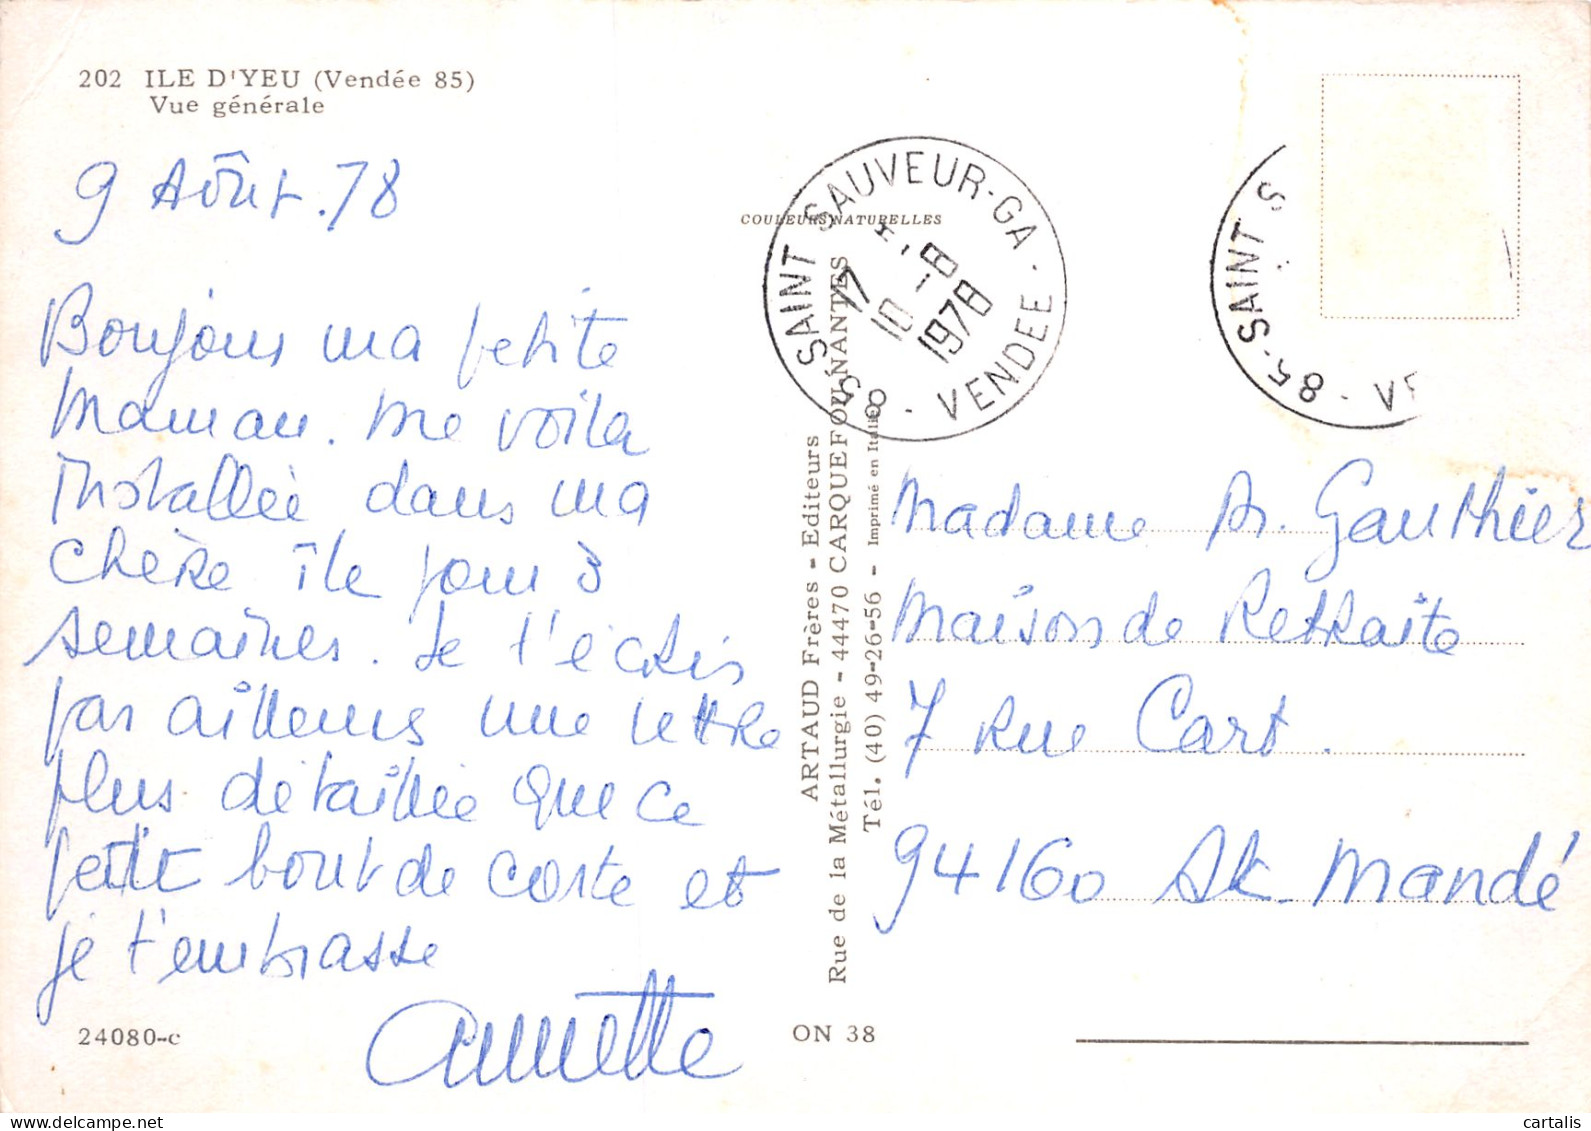 202 ILE D'YEU (Vendée 85)
Vue générale
9 Août. 78
Bonjour ma petite
Maman. Me voila
installée dans ma
chère île pour 3
semaines. Je t'écris
par ailleurs une lettre
plus détaillée que ce
petit bout de carte et
je t'embrasse
Annette
24080-c
COULEURS NATURELLES
85 SAINT SAUVEUR-GA - VENDEE -
17
10 -8
1978
ARTAUD Frères - Editeurs
Rue de la Métallurgie - 44470 CARQUEFOU NANTES
Tél. (40) 49-26-56 - Imprimé en Italie
ON 38
85-SAINT S
Madame A. Gauthier
Maison de Retraite
7 Rue Cart.
94160 St. Mandé
cartalis